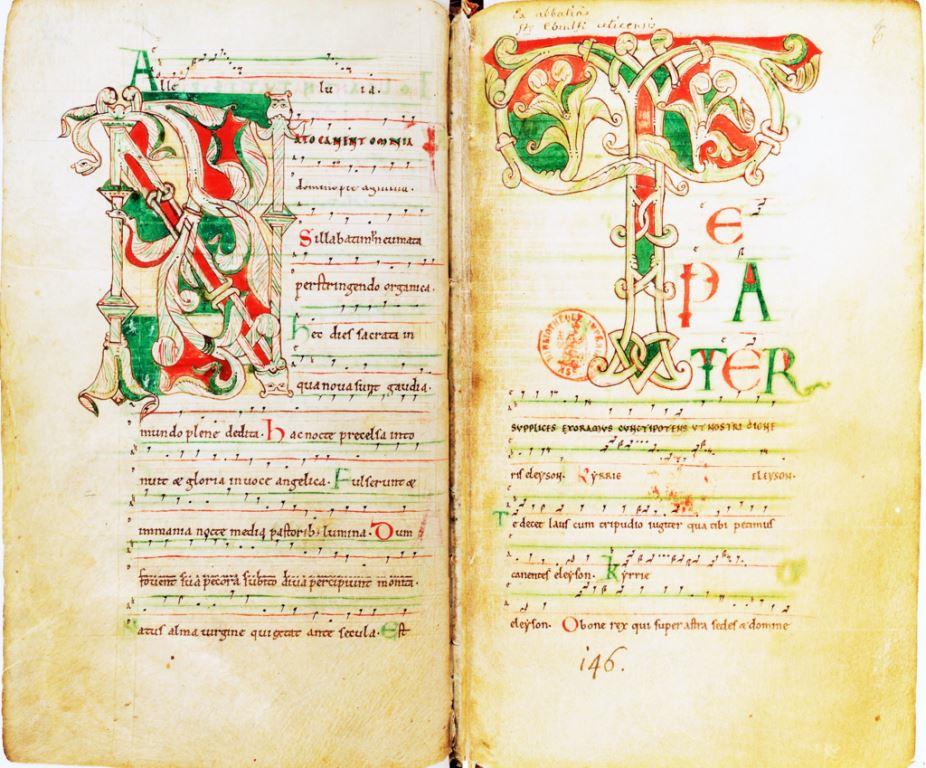 Alleluia.
NATO CANENT OMNIA
domino pie agmina.
Sillabatim neumata
perstringendo organica.
Hec dies sacrata in
qua nova sunt gaudia.
mundo plene dedita. Hac nocte precelsa into
nuit & gloria in voce angelica. Fulserunt &
immania nocte media pastorib; lumina. Dum
fovent sua pecora subito diva percipiunt monita.
Natus alma virgine qui extat ante secula. Est
Ex abbatia
Sti Ebulfi uticensis
TE
PA
TER
SUPPLICES EXORAMUS CUNCTIPOTENS UT NOSTRI DIGNE
ris eleyson. Kyrrie ELEYSON.
Te decet laus cum tripudio iugiter qua tibi petimus
canentes eleyson. Kyrrie
eleyson. O bone rex qui super astra sedes & domine
146.